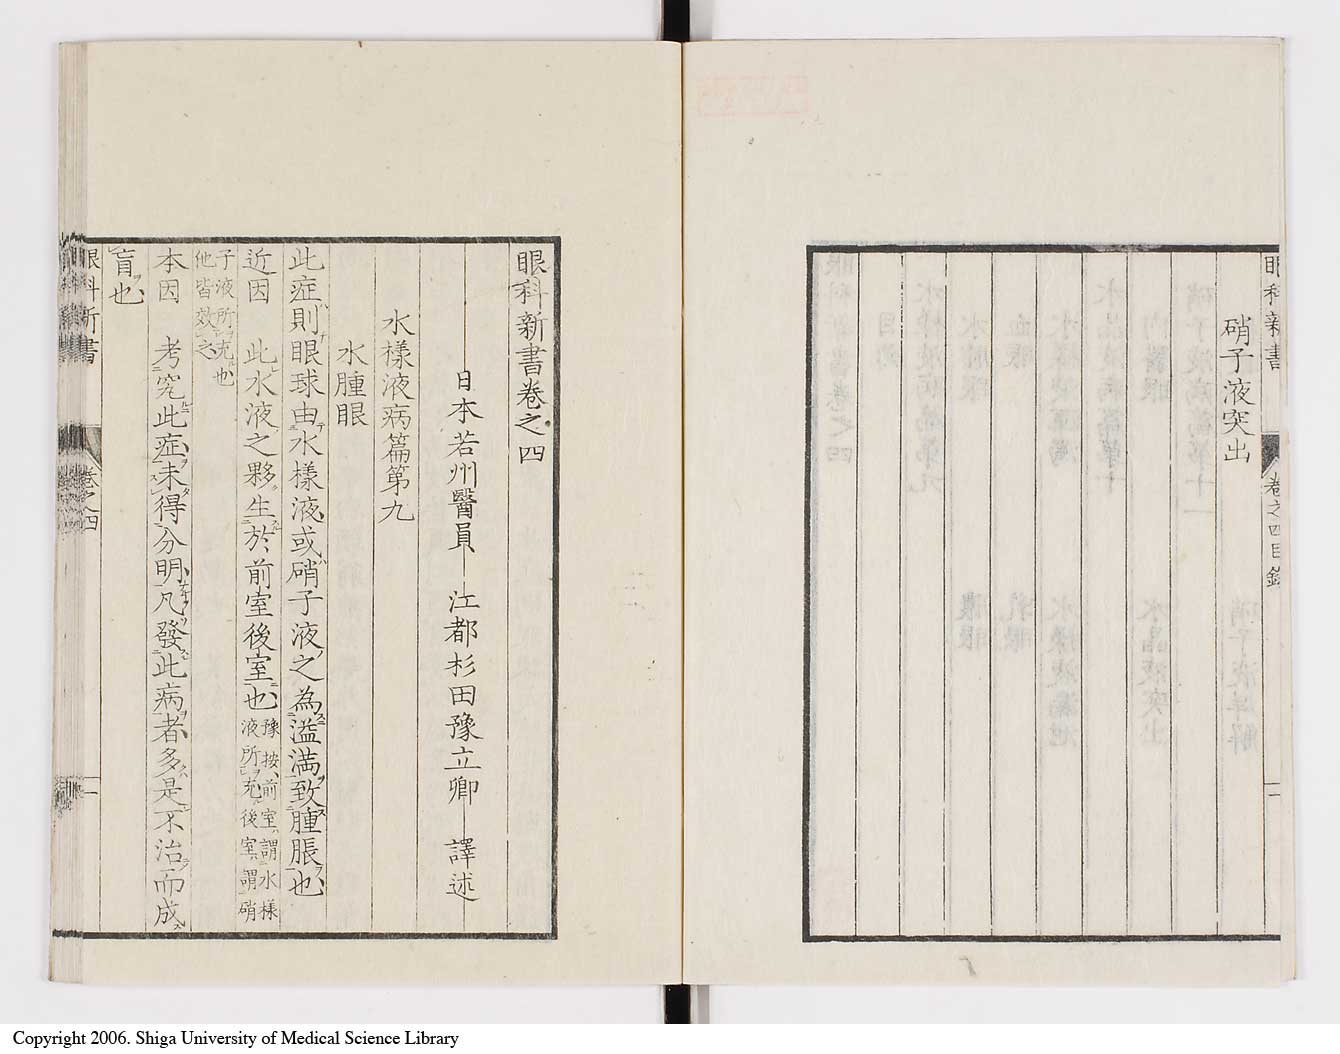 眼科新書
卷之四目錄
二
硝子液突出
眼科新書卷之四
日本若州醫員 江都杉田豫立卿 譯述
水樣液病篇第九
水腫眼
此症則眼球由水樣液或硝子液之為溢満致腫脹也
近因 此水液之夥生於前室後室也豫按前室謂水樣
液所充後室謂硝
子液所充也
他皆效之
本因 考究此症未得分明凡發此病者多是不治而成
盲也
眼科新書
卷之四
一
Copyright 2006. Shiga University of Medical Science Library